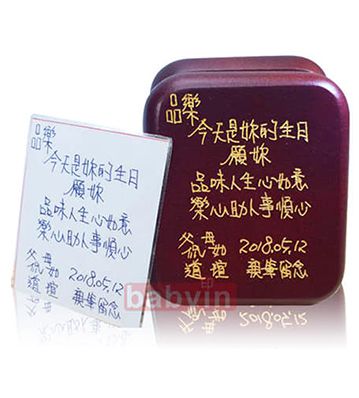 品樂
今天是妳的生日
願妳
品味人生心如意
樂心助人事順心
父 母 2018.05.12
親筆留念
品樂
今天是妳的生日
願妳
品味人生心如意
樂心助人事順心
父 母 2018.05.12
親筆留念
babyin